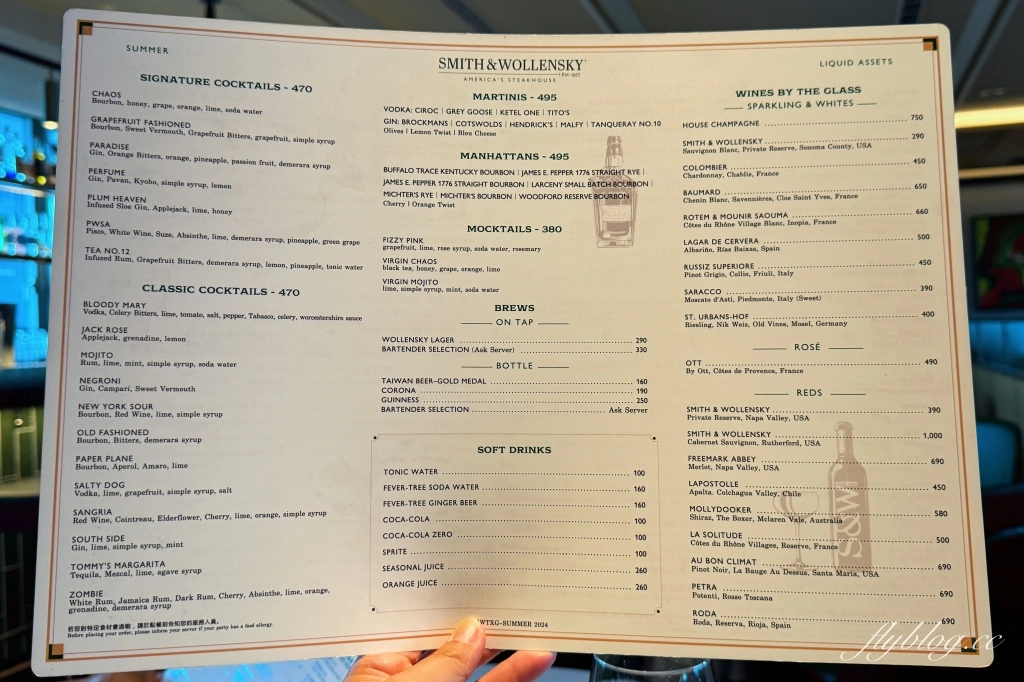 SUMMER
SIGNATURE COCKTAILS - 470
CHAOS
Bourbon, honey, grape, orange, lime, soda water
GRAPEFRUIT FASHIONED
Bourbon, Sweet Vermouth, Grapefruit Bitters, grapefruit, simple syrup
PARADISE
Gin, Orange Bitters, orange, pineapple, passion fruit, demerara syrup
PERFUME
Gin, Pavan, Kyoho, simple syrup, lemon
PLUM HEAVEN
Infused Sloe Gin, Applejack, lime, honey
PWSA
Pisco, White Wine, Suze, Absinthe, lime, demerara syrup, pineapple, green grape
TEA NO.12
Infused Rum, Grapefruit Bitters, demerara syrup, lemon, pineapple, tonic water
CLASSIC COCKTAILS - 470
BLOODY MARY
Vodka, Celery Bitters, lime, tomato, salt, pepper, Tabasco, celery, worcestershire sauce
JACK ROSE
Applejack, grenadine, lemon
MOJITO
Rum, lime, mint, simple syrup, soda water
NEGRONI
Gin, Campari, Sweet Vermouth
NEW YORK SOUR
Bourbon, Red Wine, lime, simple syrup
OLD FASHIONED
Bourbon, Bitters, demerara syrup
PAPER PLANE
Bourbon, Aperol, Amaro, lime
SALTY DOG
Vodka, lime, grapefruit, simple syrup, salt
SANGRIA
Red Wine, Cointreau, Elderflower, Cherry, lime, orange, simple syrup
SOUTH SIDE
Gin, lime, simple syrup, mint
TOMMY'S MARGARITA
Tequila, Mezcal, lime, agave syrup
ZOMBIE
White Rum, Jamaica Rum, Dark Rum, Cherry, Absinthe, lime, orange,
grenadine, demerara syrup
若您對特定食材會過敏，請於點餐前告知您的服務人員。
Before placing your order, please inform your server if your party has a food allergy.
SMITH & WOLLENSKY
Est. 1977
AMERICA'S STEAKHOUSE
MARTINIS - 495
VODKA: CIROC | GREY GOOSE | KETEL ONE | TITO'S
GIN: BROCKMANS | COTSWOLDS | HENDRICK'S | MALFY | TANQUERAY NO.10
Olives | Lemon Twist | Bleu Cheese
MANHATTANS - 495
BUFFALO TRACE KENTUCKY BOURBON | JAMES E. PEPPER 1776 STRAIGHT RYE |
JAMES E. PEPPER 1776 STRAIGHT BOURBON | LARCENY SMALL BATCH BOURBON |
MICHTER'S RYE | MICHTER'S BOURBON | WOODFORD RESERVE BOURBON
Cherry | Orange Twist
MOCKTAILS - 380
FIZZY PINK
grapefruit, lime, rose syrup, soda water, rosemary
VIRGIN CHAOS
black tea, honey, grape, orange, lime
VIRGIN MOJITO
lime, simple syrup, mint, soda water
BREWS
ON TAP
WOLLENSKY LAGER 290
BARTENDER SELECTION (Ask Server) 330
BOTTLE
TAIWAN BEER-GOLD MEDAL 160
CORONA 190
GUINNESS 250
BARTENDER SELECTION Ask Server
SOFT DRINKS
TONIC WATER 100
FEVER-TREE SODA WATER 160
FEVER-TREE GINGER BEER 160
COCA-COLA 100
COCA-COLA ZERO 100
SPRITE 100
SEASONAL JUICE 260
ORANGE JUICE 260
WTXG-SUMMER 2024
LIQUID ASSETS
WINES BY THE GLASS
SPARKLING & WHITES
HOUSE CHAMPAGNE 750
SMITH & WOLLENSKY 290
Sauvignon Blanc, Private Reserve, Sonoma County, USA
COLOMBIER 450
Chardonnay, Chablis, France
BAUMARD 650
Chenin Blanc, Savennières, Clos Saint Yves, France
ROTEM & MOUNIR SAOUMA 660
Côtes du Rhône Village Blanc, Inopia, France
LAGAR DE CERVERA 500
Albariño, Rías Baixas, Spain
RUSSIZ SUPERIORE 450
Pinot Grigio, Collio, Friuli, Italy
SARACCO 390
Moscato d'Asti, Piedmonte, Italy (Sweet)
ST. URBANS-HOF 400
Riesling, Nik Weis, Old Vines, Mosel, Germany
ROSÉ
OTT 490
By Ott, Côtes de Provence, France
REDS
SMITH & WOLLENSKY 390
Private Reserve, Napa Valley, USA
SMITH & WOLLENSKY 1,000
Cabernet Sauvignon, Rutherford, USA
FREEMARK ABBEY 690
Merlot, Napa Valley, USA
LAPOSTOLLE 450
Apalta, Colchagua Valley, Chile
MOLLYDOOKER 580
Shiraz, The Boxer, Mclaren Vale, Australia
LA SOLITUDE 500
Côtes du Rhône Villages, Reserve, France
AU BON CLIMAT 690
Pinot Noir, La Bauge Au Dessus, Santa Maria, USA
PETRA 690
Potenti, Rosso Toscana
RODA 690
Roda, Reserva, Rioja, Spain
S&W
flyblog.cc